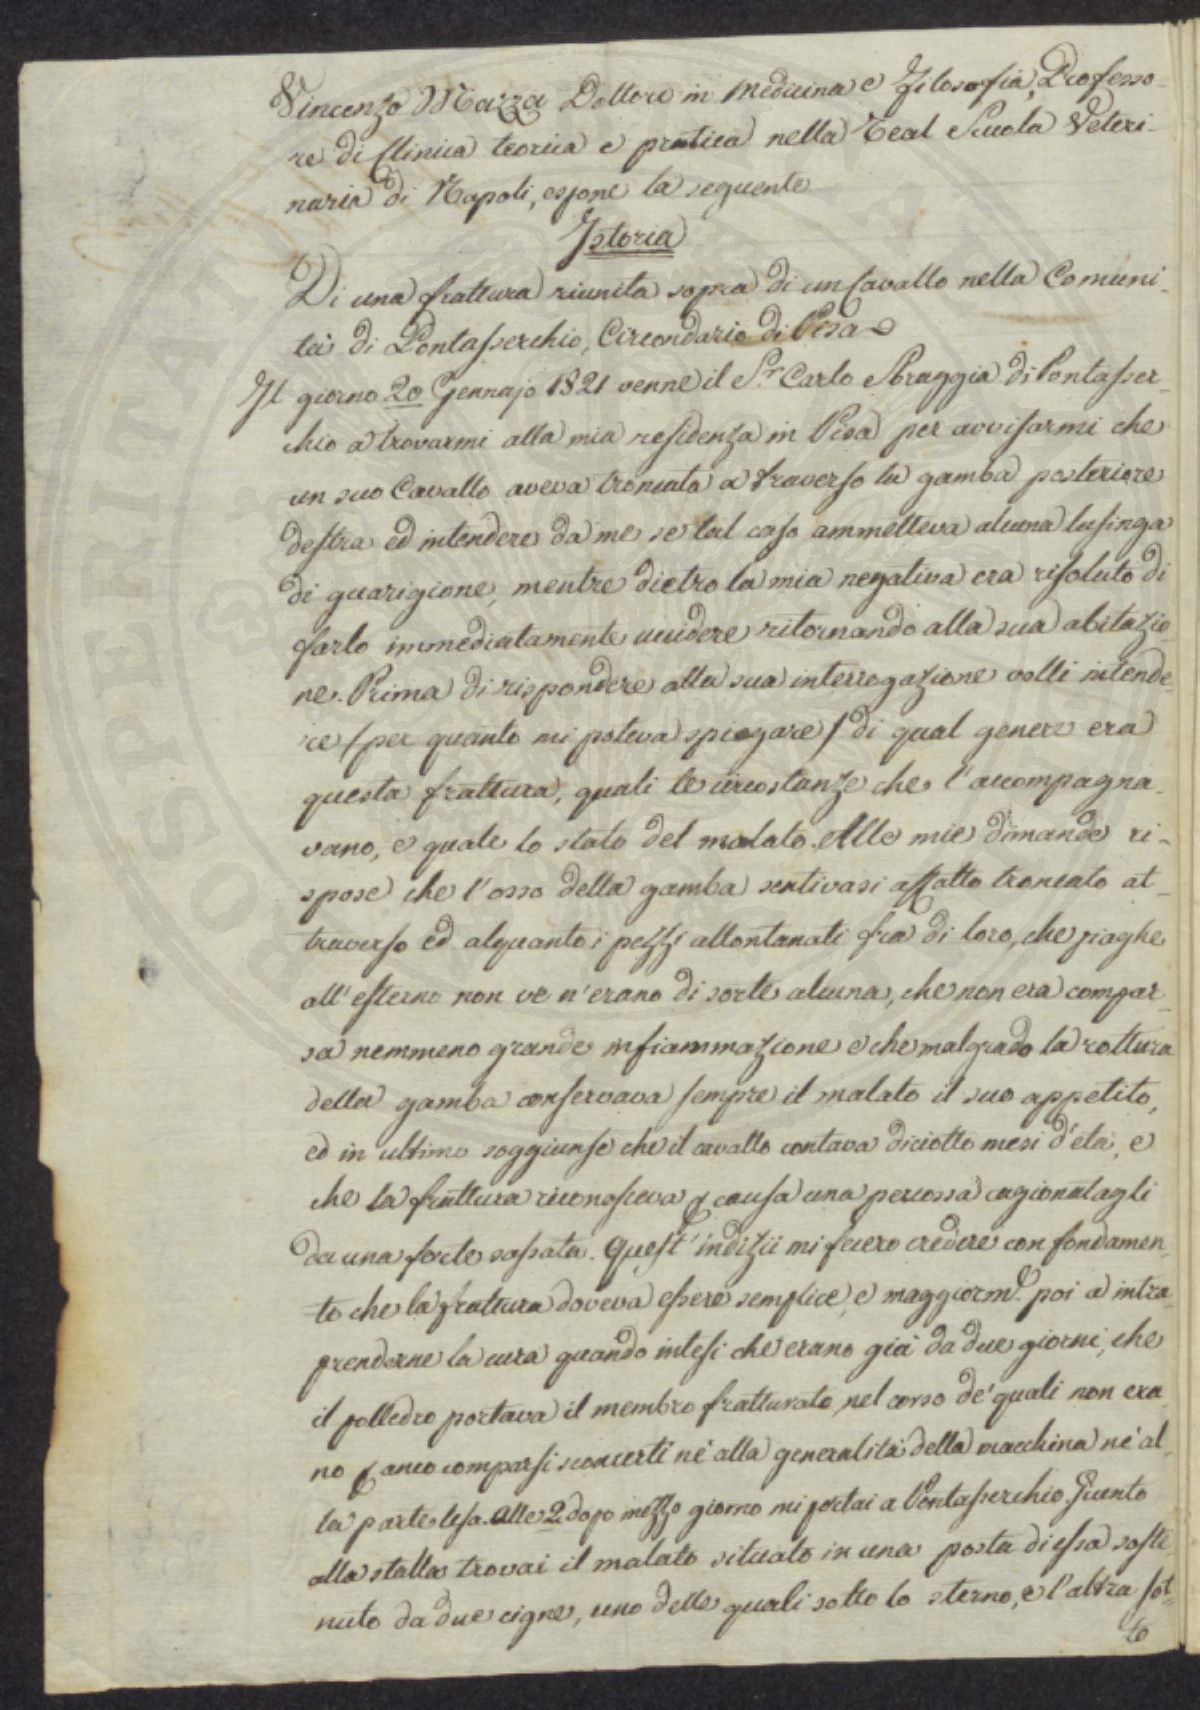 Vincenzo Mazza Dottore in Medicina e Filosofia, Professo-
re di Clinica teorica e pratica nella Real Scuola Veteri-
naria di Napoli, espone la seguente
Istoria
Di una frattura riunita sopra di un Cavallo nella Comuni-
tà di Pontasserchio, Circondario di Pisa
Il giorno 20 Gennajo 1821 venne il Sr. Carlo Sbraggia di Pontasser-
chio a trovarmi alla mia residenza in Pisa per avvisarmi che
un suo Cavallo aveva troncata a traverso la gamba posteriore
destra ed intendere da me se tal caso ammetteva alcuna lusinga
di guarigione, mentre dietro la mia negativa era risoluto di
farlo immediatamente uccidere ritornando alla sua abitazio-
ne. Prima di rispondere alla sua interrogazione volli intende-
re (per quanto mi poteva spiegare) di qual genere era
questa frattura, quali le circostanze che l'accompagna-
vano, e quale lo stato del malato. Alle mie dimande ri-
spose che l'osso della gamba sentivasi affatto troncato at-
traverso ed alquanto i pezzi allontanati fra di loro, che piaghe
all'esterno non ve n'erano di sorte alcuna, che non era compar-
sa nemmeno grande infiammazione e che malgrado la rottura
della gamba conservava sempre il malato il suo appetito,
ed in ultimo soggiunse che il cavallo contava diciotto mesi d'età, e
che la frattura riconosceva p causa una percossa cagionatagli
da una forte sassata. Quest'indizii mi fecero credere con fondamen-
to che la frattura doveva essere semplice, e maggiorme. poi a intra-
prenderne la cura quando intesi che erano già da due giorni, che
il polledro portava il membro fratturato, nel corso de' quali non era-
no p anco comparsi sconcerti nè alla generalità della macchina nè al-
la parte lesa. Alle 2 dopo mezzo giorno mi portai a Pontasserchio. Giunto
alla stalla trovai il malato situato in una posta di essa soste-
nuto da due cigne, uno delle quali sotto lo sterno, e l'altra sot-
to